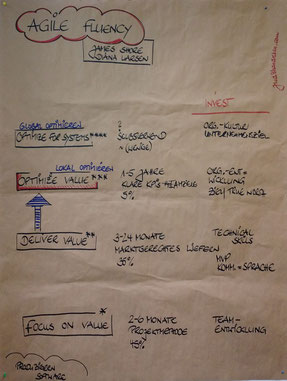 AGILE FLUENCY
JAMES SHORE
DIANA LARSEN
INVEST
GLOBAL OPTIMIEREN
OPTIMIZE FOR SYSTEMS ****
?
(WENIGE)
ORG.-KULTUR
LOKAL OPTIMIEREN
OPTIMIZE VALUE ***
1-5 JAHRE
KLARE KPIS + TEAMZIELE
5%
ORG.-ENT=
WICKLUNG
DELIVER VALUE **
3-24 MONATE
MARKTGERECHTES LIEFERN
35%
TECHNICAL
SKILLS
MVP
KOMM. + SPRACHE
FOCUS ON VALUE *
2-6 MONATE
PROJEKTMETHODE
45%
TEAM-
ENTWICKLUNG